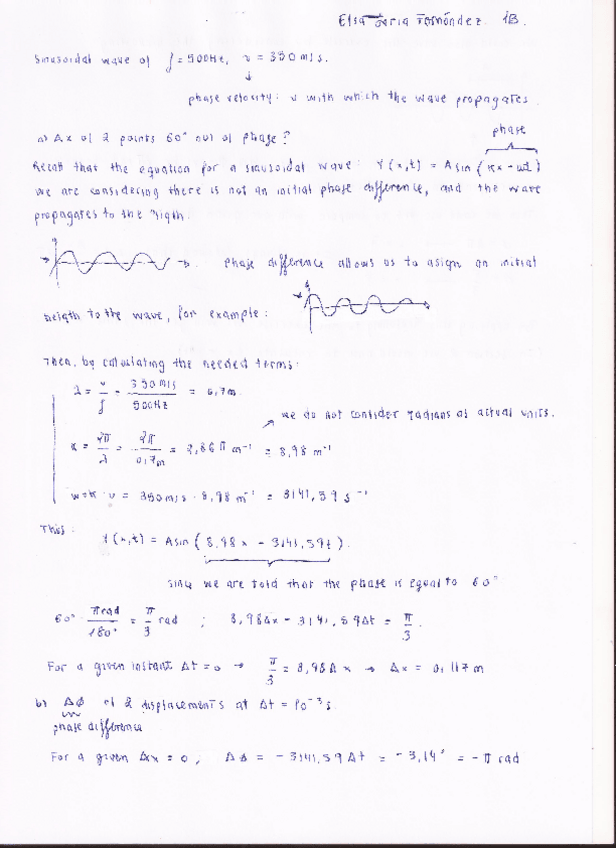 Elsa Soria Fernández 1B.
Sinusoidal wave of f = 500Hz, v = 350 m/s.
phase velocity: v with which the wave propagates.
a) Δx of 2 points 60° out of phase?
phase
Recall that the equation for a sinusoidal wave: Y(x,t) = A sin (kx - wt)
We are considering there is not an initial phase difference, and the wave
propagates to the rigth.
Phase difference allows us to asign an initial
heigth to the wave, for example:
Then, by calculating the needed terms:
λ = v/f = 350 m/s / 500Hz = 0,7m.
we do not consider radians as actual units.
k = 2π/λ = 2π/0,7m = 2,86π m⁻¹ = 8,98 m⁻¹
w = k·v = 350 m/s · 8,98 m⁻¹ = 3141,59 s⁻¹
Thus:
Y(x,t) = A sin (8,98x - 3141,59t).
since we are told that the phase is equal to 60°
60° · πrad/180° = π/3 rad ; 8,98Δx - 3141,59Δt = π/3.
For a given instant Δt = 0 → π/3 = 8,98Δx → Δx = 0,117 m
b) Δϕ of 2 displacements at Δt = 10⁻³ s.
phase difference
For a given Δx = 0; Δϕ = - 3141,59 Δt = - 3,14 = - π rad